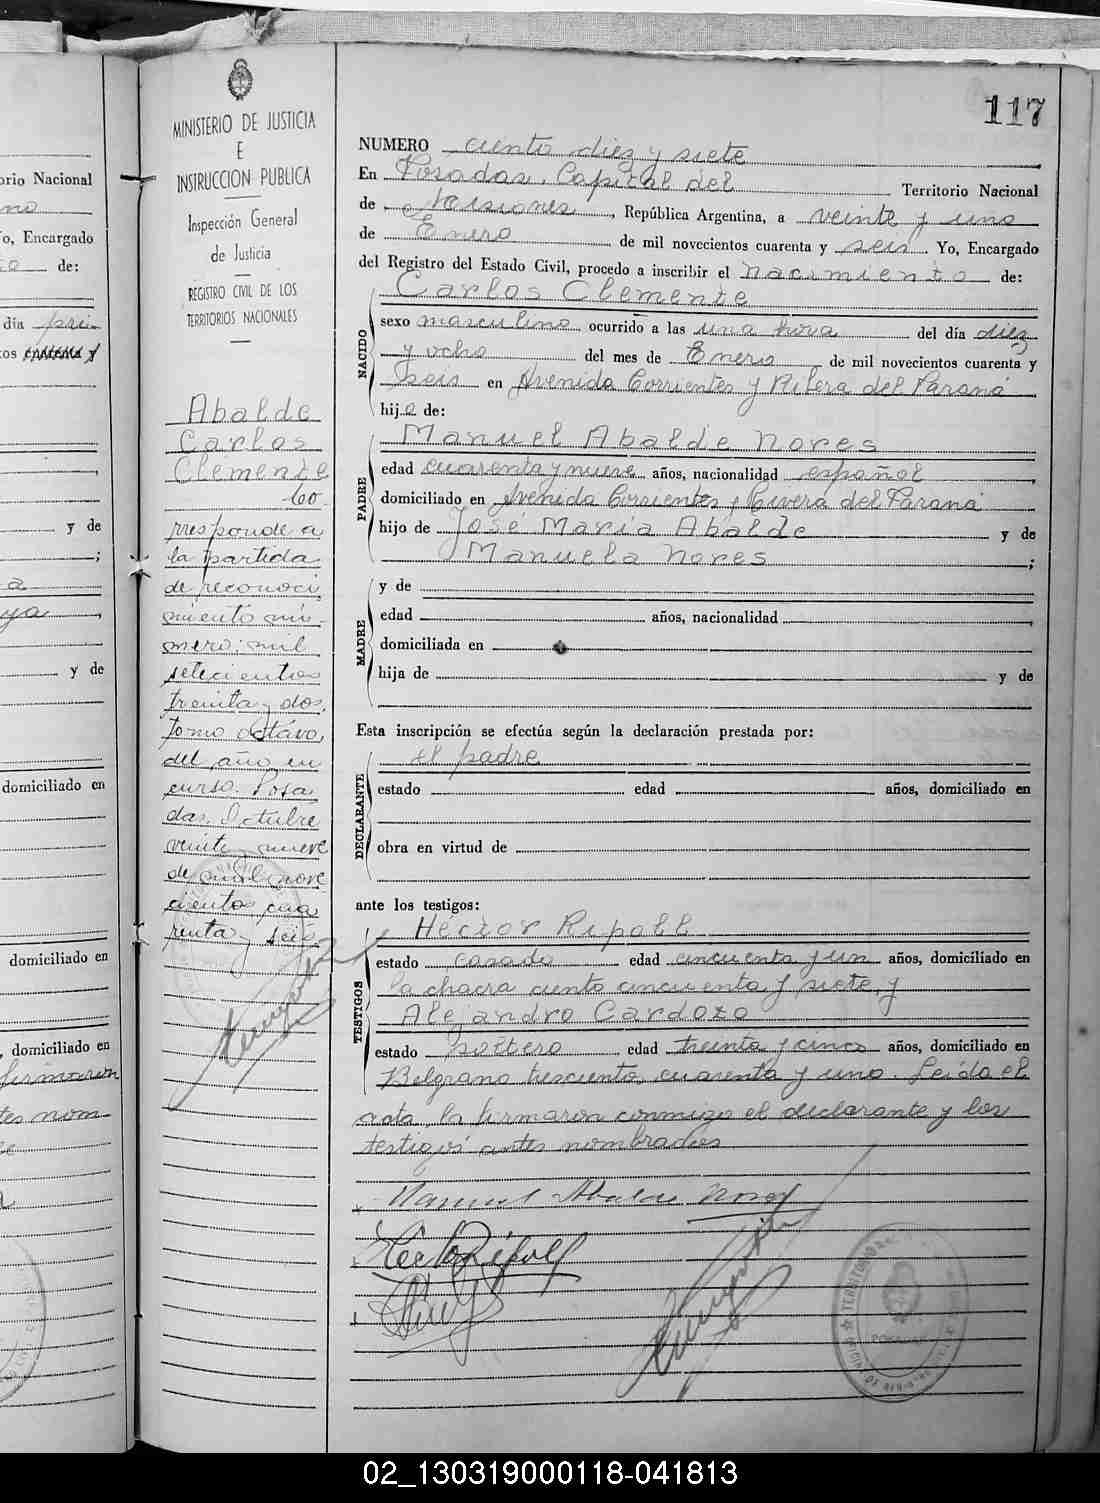 117
MINISTERIO DE JUSTICIA
E
INSTRUCCION PUBLICA
Inspección General
de Justicia
REGISTRO CIVIL DE LOS
TERRITORIOS NACIONALES
Abalde
Carlos
Clemente
Co
rresponde a
la partida
de reconoci
miento nú-
mero: mil
setecientos
treinta y dos,
Tomo octavo,
del año en
curso. Posa
das, Octubre
veinte y nueve
de mil nove
cientos cua
renta y seis.
NUMERO ciento diez y siete
En Posadas, Capital del Territorio Nacional
de Misiones, República Argentina, a veinte y uno
de Enero de mil novecientos cuarenta y seis Yo, Encargado
del Registro del Estado Civil, procedo a inscribir el nacimiento de:
NACIDO
Carlos Clemente
sexo masculino ocurrido a las una hora del día diez
y ocho del mes de Enero de mil novecientos cuarenta y
seis en Avenida Corrientes y Ribera del Paraná
hijo de:
PADRE
Manuel Abalde Nores
edad cuarenta y nueve años, nacionalidad español
domiciliado en Avenida Corrientes y Rivera del Paraná
hijo de José María Abalde y de
Manuela Nores ;
MADRE
y de
edad años, nacionalidad
domiciliada en
hija de y de
Esta inscripción se efectúa según la declaración prestada por:
DECLARANTE
el padre
estado edad años, domiciliado en
obra en virtud de
ante los testigos:
TESTIGOS
Héctor Ripoll
estado casado edad cincuenta y un años, domiciliado en
la chacra ciento cincuenta y siete, y
Alejandro Cardozo
estado soltero edad treinta y cinco años, domiciliado en
Belgrano trescientos cuarenta y uno. Leída el
acta, la firmaron conmigo el declarante y los
testigos antes nombrados
Manuel Abalde Nores
Hector Ripoll
TERRITORIO
POSADAS
orio Nacional
no
o, Encargado
de:
día pri-
y de
;
a
ya
y de
domiciliado en
domiciliado en
, domiciliado en
firmaron
tes nom-
02_130319000118-041813